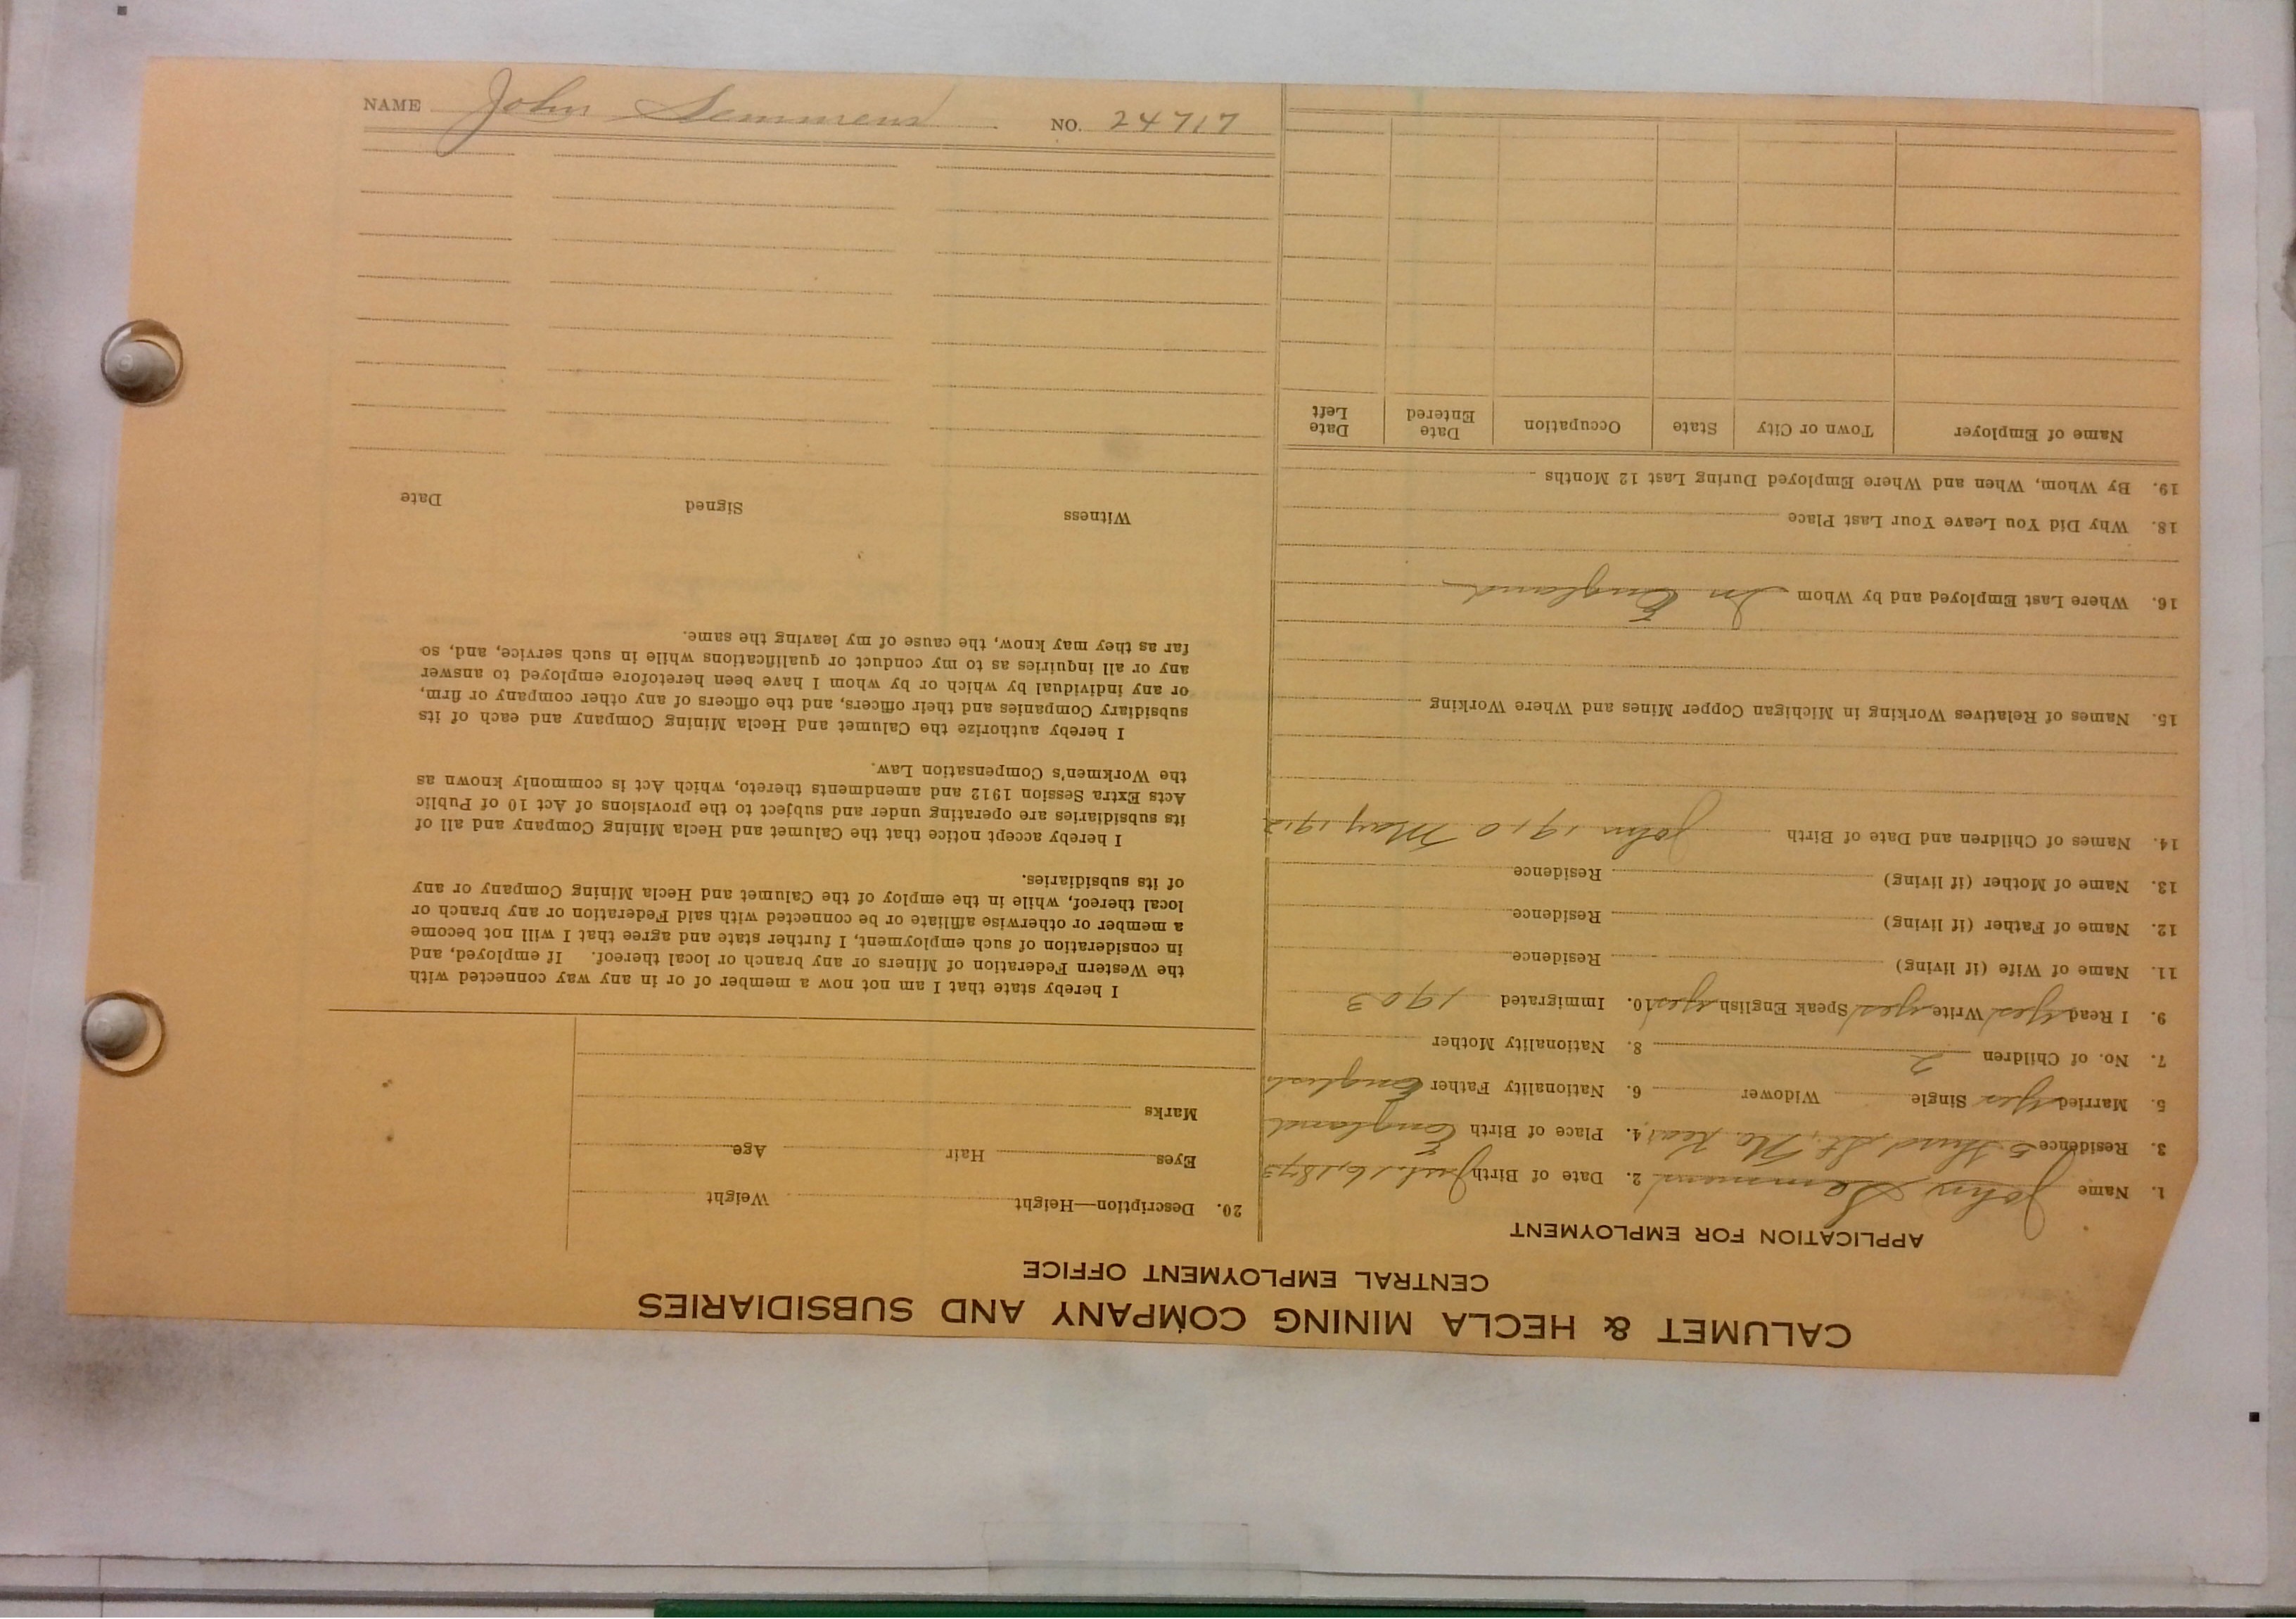 CALUMET & HECLA MINING COMPANY AND SUBSIDIARIES
CENTRAL EMPLOYMENT OFFICE
APPLICATION FOR EMPLOYMENT
1. Name John Semmens 2. Date of Birth 16, 1873
3. Residence 5 Third St. 4. Place of Birth England
5. Married yes Single Widower 6. Nationality Father English
7. No. of Children 2 8. Nationality Mother
9. I Read yes Write yes Speak English yes 10. Immigrated 1903
11. Name of Wife (if living) Residence
12. Name of Father (if living) Residence
13. Name of Mother (if living) Residence
14. Names of Children and Date of Birth John 1910 May 1912
15. Names of Relatives Working in Michigan Copper Mines and Where Working
16. Where Last Employed and by Whom In England
18. Why Did You Leave Your Last Place
19. By Whom, When and Where Employed During Last 12 Months
Name of Employer Town or City State Occupation Date Entered Date Left
20. Description—Height Weight
Eyes Hair Age
Marks
I hereby state that I am not now a member of or in any way connected with
the Western Federation of Miners or any branch or local thereof. If employed, and
in consideration of such employment, I further state and agree that I will not become
a member or otherwise affiliate or be connected with said Federation or any branch or
local thereof, while in the employ of the Calumet and Hecla Mining Company or any
of its subsidiaries.
I hereby accept notice that the Calumet and Hecla Mining Company and all of
its subsidiaries are operating under and subject to the provisions of Act 10 of Public
Acts Extra Session 1912 and amendments thereto, which Act is commonly known as
the Workmen's Compensation Law.
I hereby authorize the Calumet and Hecla Mining Company and each of its
subsidiary Companies and their officers, and the officers of any other company or firm,
or any individual by which or by whom I have been heretofore employed to answer
any or all inquiries as to my conduct or qualifications while in such service, and, so
far as they may know, the cause of my leaving the same.
Witness Signed Date
NAME John Semmens NO. 24717